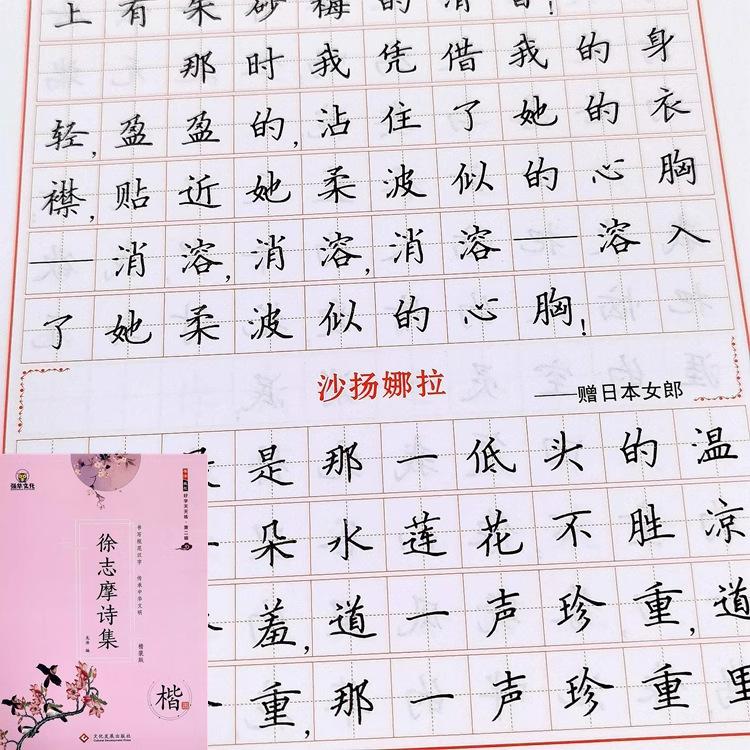 上有朱砂梅的清香！
那时我凭借我的身
轻，盈盈的，沾住了她的衣
襟，贴近她柔波似的心胸
——消溶，消溶，消溶——溶入
了她柔波似的心胸！
沙扬娜拉
——赠日本女郎
是那一低头的温
朵水莲花不胜凉
羞，道一声珍重，道
一重，那一声珍重里
强华文化
好字天天练·第二辑
书写规范汉字 传承中华文明
徐志摩诗集
楷
文化发展出版社
Cultural Development Press